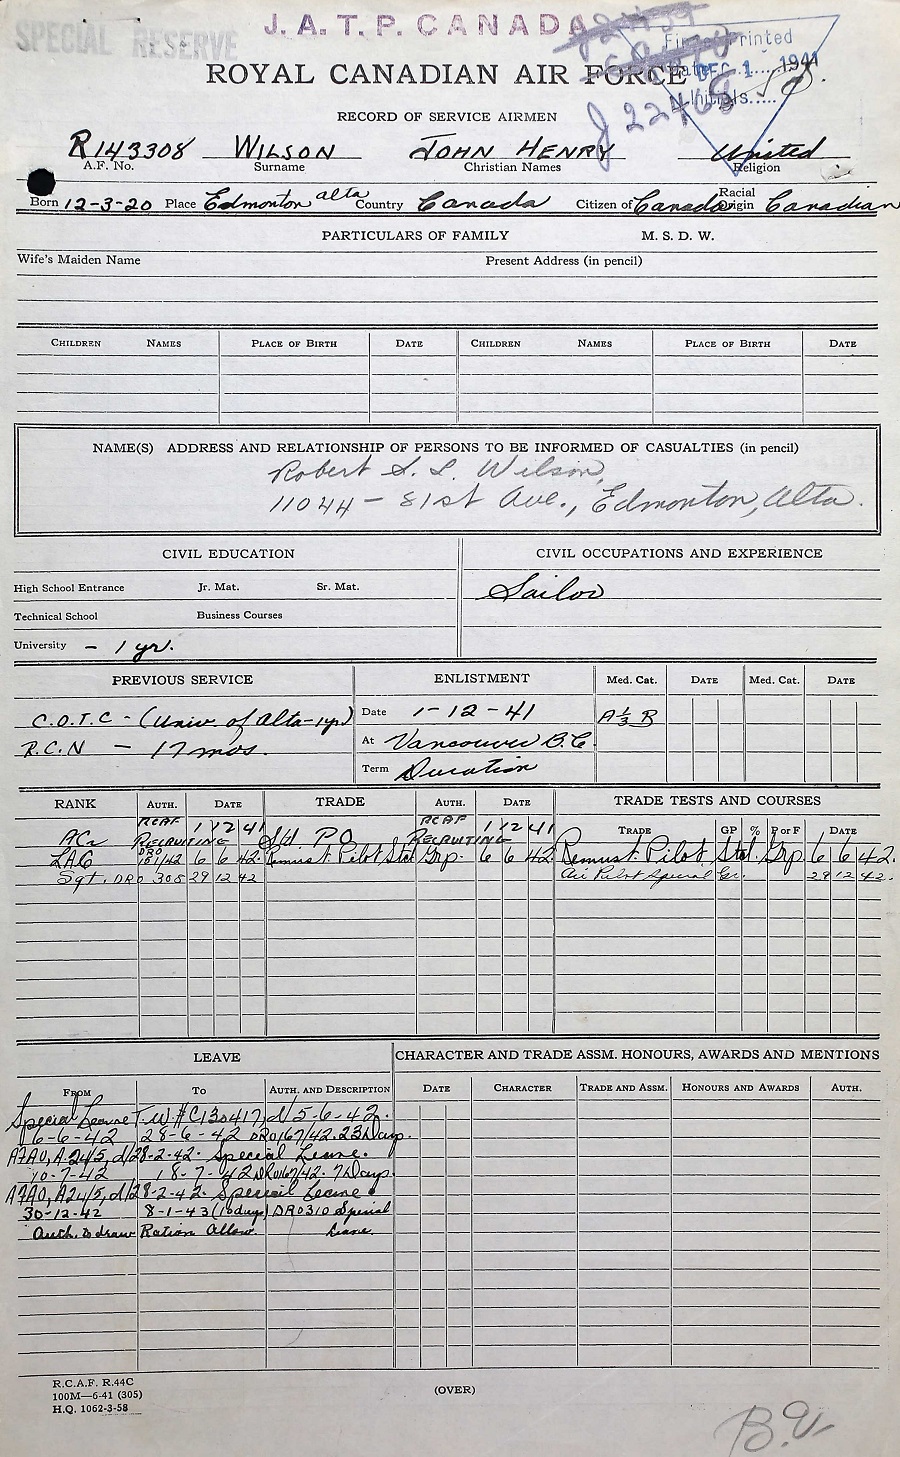 J.A.T.P. CANADA
SPECIAL RESERVE
Fingerprinted
Date DEC 1 1941
Initials.....
J 22468
ROYAL CANADIAN AIR FORCE
RECORD OF SERVICE AIRMEN
R143308 WILSON JOHN HENRY United
A.F. No. Surname Christian Names Religion
Born 12-3-20 Place Edmonton alta Country Canada Citizen of Canada Racial Origin Canadian
PARTICULARS OF FAMILY M. S. D. W.
Wife's Maiden Name Present Address (in pencil)
CHILDREN NAMES PLACE OF BIRTH DATE CHILDREN NAMES PLACE OF BIRTH DATE
NAME(S) ADDRESS AND RELATIONSHIP OF PERSONS TO BE INFORMED OF CASUALTIES (in pencil)
Robert S. L. Wilson,
11044 - 81st Ave., Edmonton, Alta.
CIVIL EDUCATION CIVIL OCCUPATIONS AND EXPERIENCE
High School Entrance Jr. Mat. Sr. Mat. Sailor
Technical School Business Courses
University - 1 yr.
PREVIOUS SERVICE ENLISTMENT Med. Cat. DATE Med. Cat. DATE
C.O.T.C - (Univ. of Alta-1yr) Date 1-12-41 A 1/3 B
R.C.N - 17 mos. At Vancouver B.C.
Term Duration
RANK AUTH. DATE TRADE AUTH. DATE TRADE TESTS AND COURSES
TRADE GP % P or F DATE
AC2 RCAF RECRUITING 1 12 41 Std. PO RCAF RECRUITING 1 12 41
LAC DRO 151/42 6 6 42 Remust. Pilot Std Grp. 6 6 42 Remust. Pilot Std. Grp 6 6 42.
Sgt. DRO 305 29 12 42 Air Pilot Special Gr. 29 12 42.
LEAVE CHARACTER AND TRADE ASSM. HONOURS, AWARDS AND MENTIONS
FROM TO AUTH. AND DESCRIPTION DATE CHARACTER TRADE AND ASSM. HONOURS AND AWARDS AUTH.
Special Leave T.W.#C130417, d/5-6-42.
6-6-42 28-6-42 DRO167/42. 23 Days.
AFAO, A.24/5, d/28-2-42. Special Leave.
10-7-42 18-7-42 DRO167/42. 7 Days.
AFAO, A24/5, d/28-2-42. Special Leave.
30-12-42 8-1-43 (10days) DRO310 Special
Auth. to draw Ration Allow. Leave.
R.C.A.F. R.44C
100M—6-41 (305)
H.Q. 1062-3-58
(OVER)